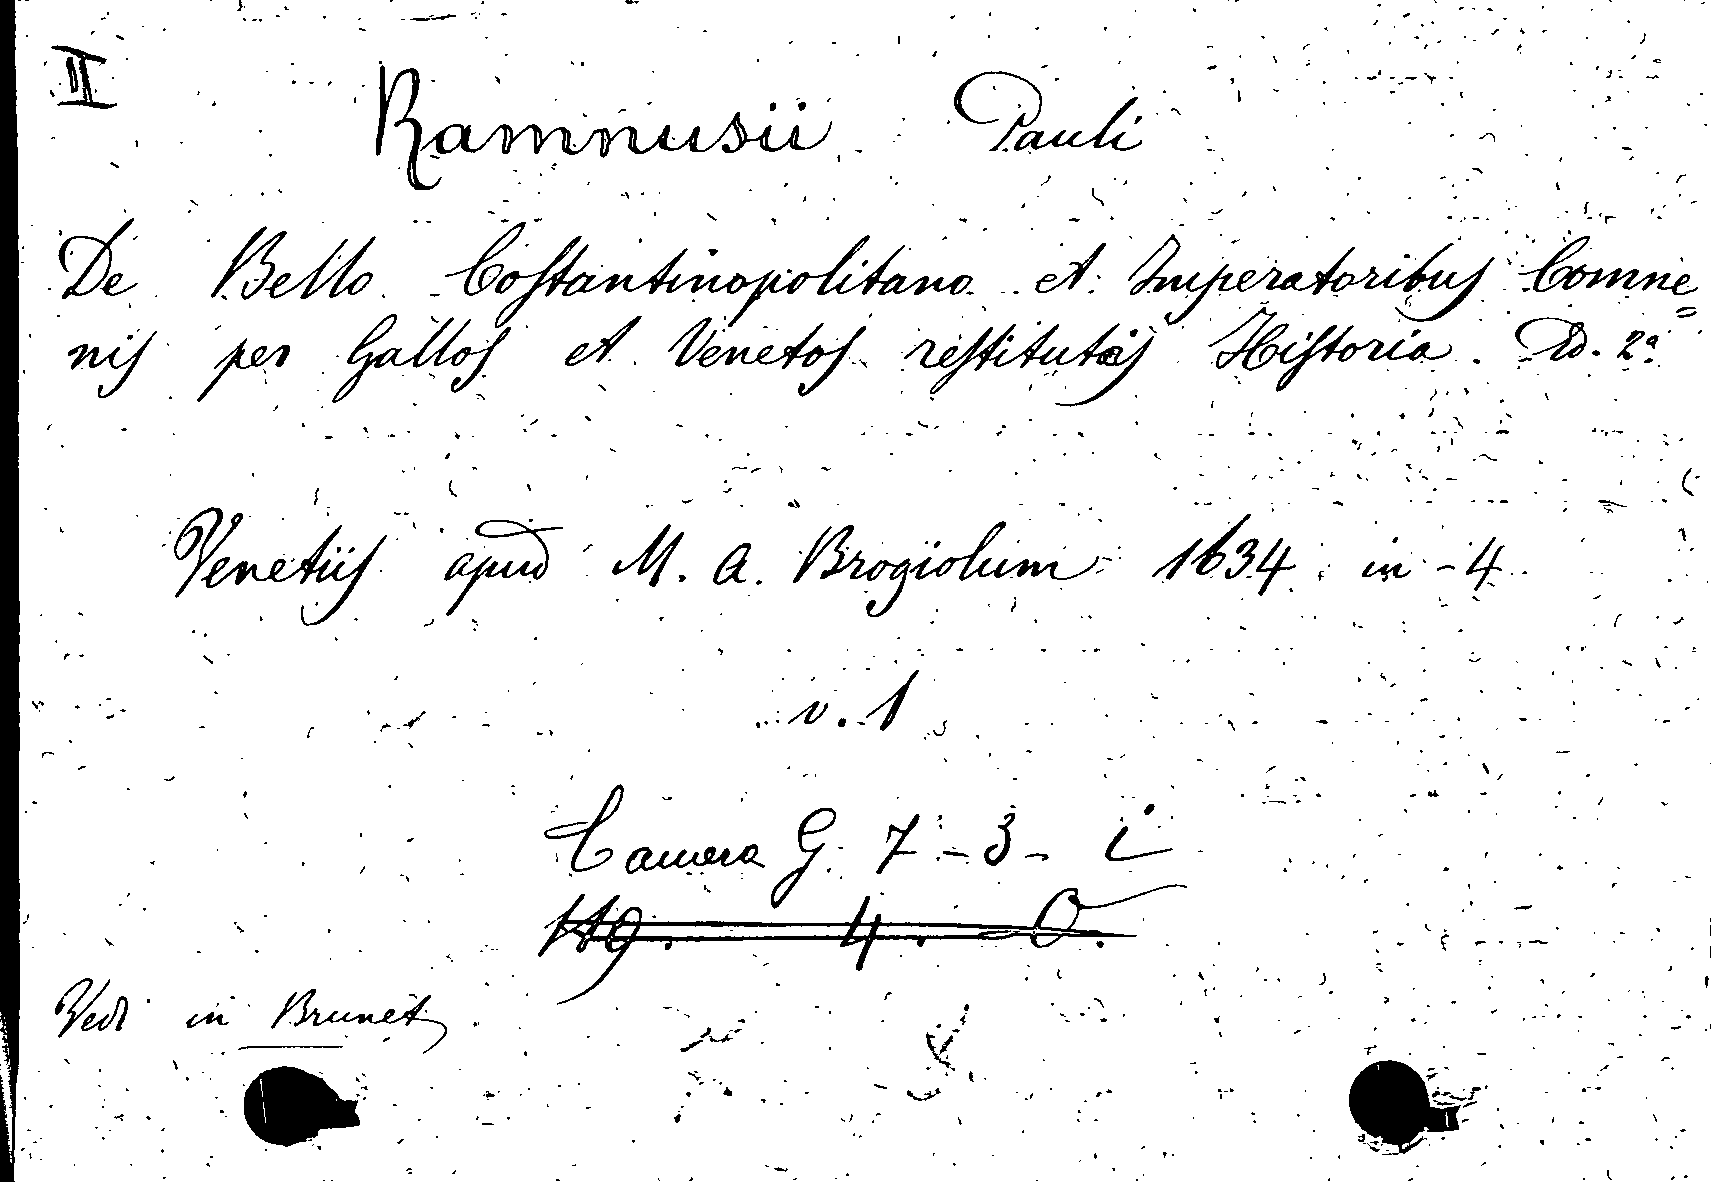 II
Ramnusii Pauli
De Bello Costantinopolitano et Imperatoribus Comne=
nis per Gallos et Venetos restitutis Historia. Ed. 2ª
Venetiis apud M. A. Brogiolum 1634 in-4
v. 1
Camera G. 7-3-i
119. 4. O.
Vedi in Brunet